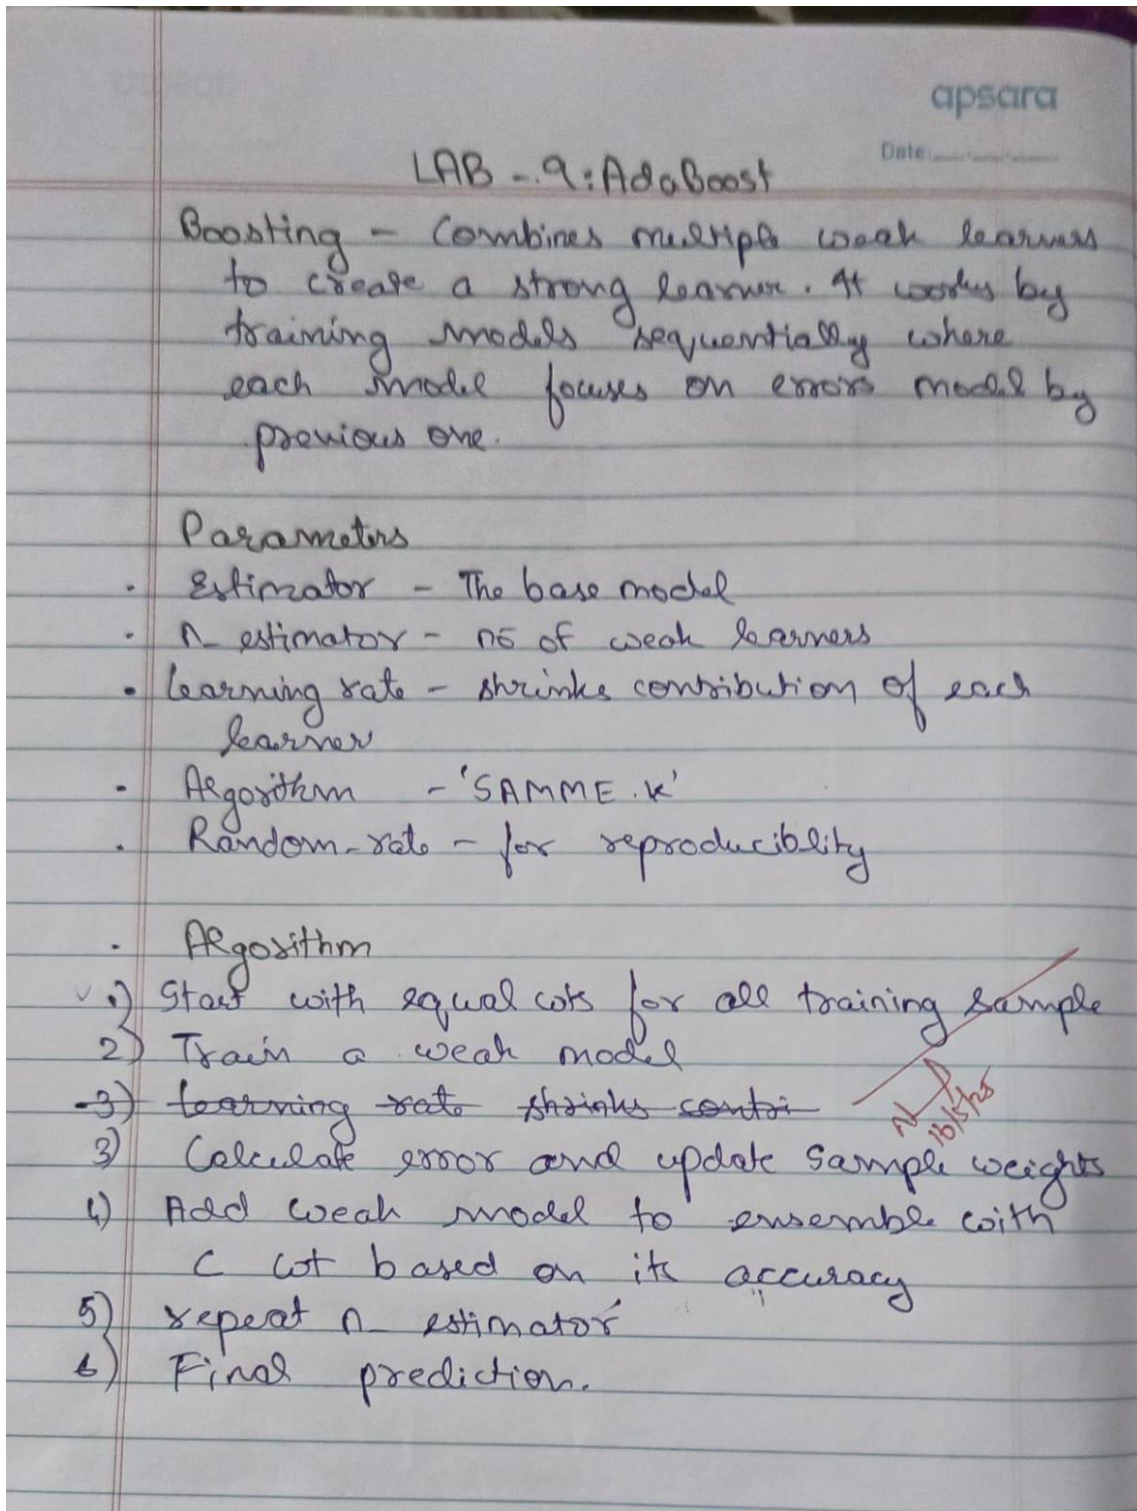 apsara
Date:
LAB - 9: AdaBoost
Boosting - Combines multiple weak learners
to create a strong learner. It works by
training models sequentially where
each model focuses on errors model by
previous one.
Parameters
· Estimator - The base model
· n_estimator - no of weak learners
· learning rate - shrinks contribution of each
learner
· Algorithm - 'SAMME.K'
· Random_rate - for reproduciblity
· Algorithm
1) Start with equal wts for all training sample
2) Train a weak model
3) learning rate shrinks contri
3) Calculate error and update sample weights
4) Add weak model to ensemble with
C wt based on its accuracy
5) repeat n_estimator
6) Final prediction.
16/5/25